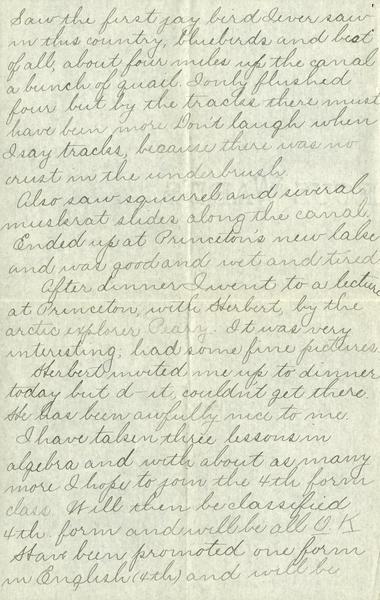 Saw the first jay bird I ever saw
in this country, bluebirds and best
of all, about four miles up the canal
a bunch of quail. I only flushed
four but by the tracks there must
have been more. Don't laugh when
I say tracks, because there was no
crust in the underbrush.
Also saw squirrel and several
muskrat slides along the canal.
Ended up at Princeton's new lake
and was good and wet and tired.
After dinner I went to a lecture
at Princeton, with Herbert, by the
arctic explorer Peary. It was very
interesting; had some fine pictures.
Herbert invited me up to dinner
today but d-it, couldn't get there.
He has been awfully nice to me.
I have taken three lessons in
algebra and with about as many
more I hope to join the 4th form
class. Will then be classified
4th. form and will be all O.K
Have been promoted one form
in English (4th) and will be